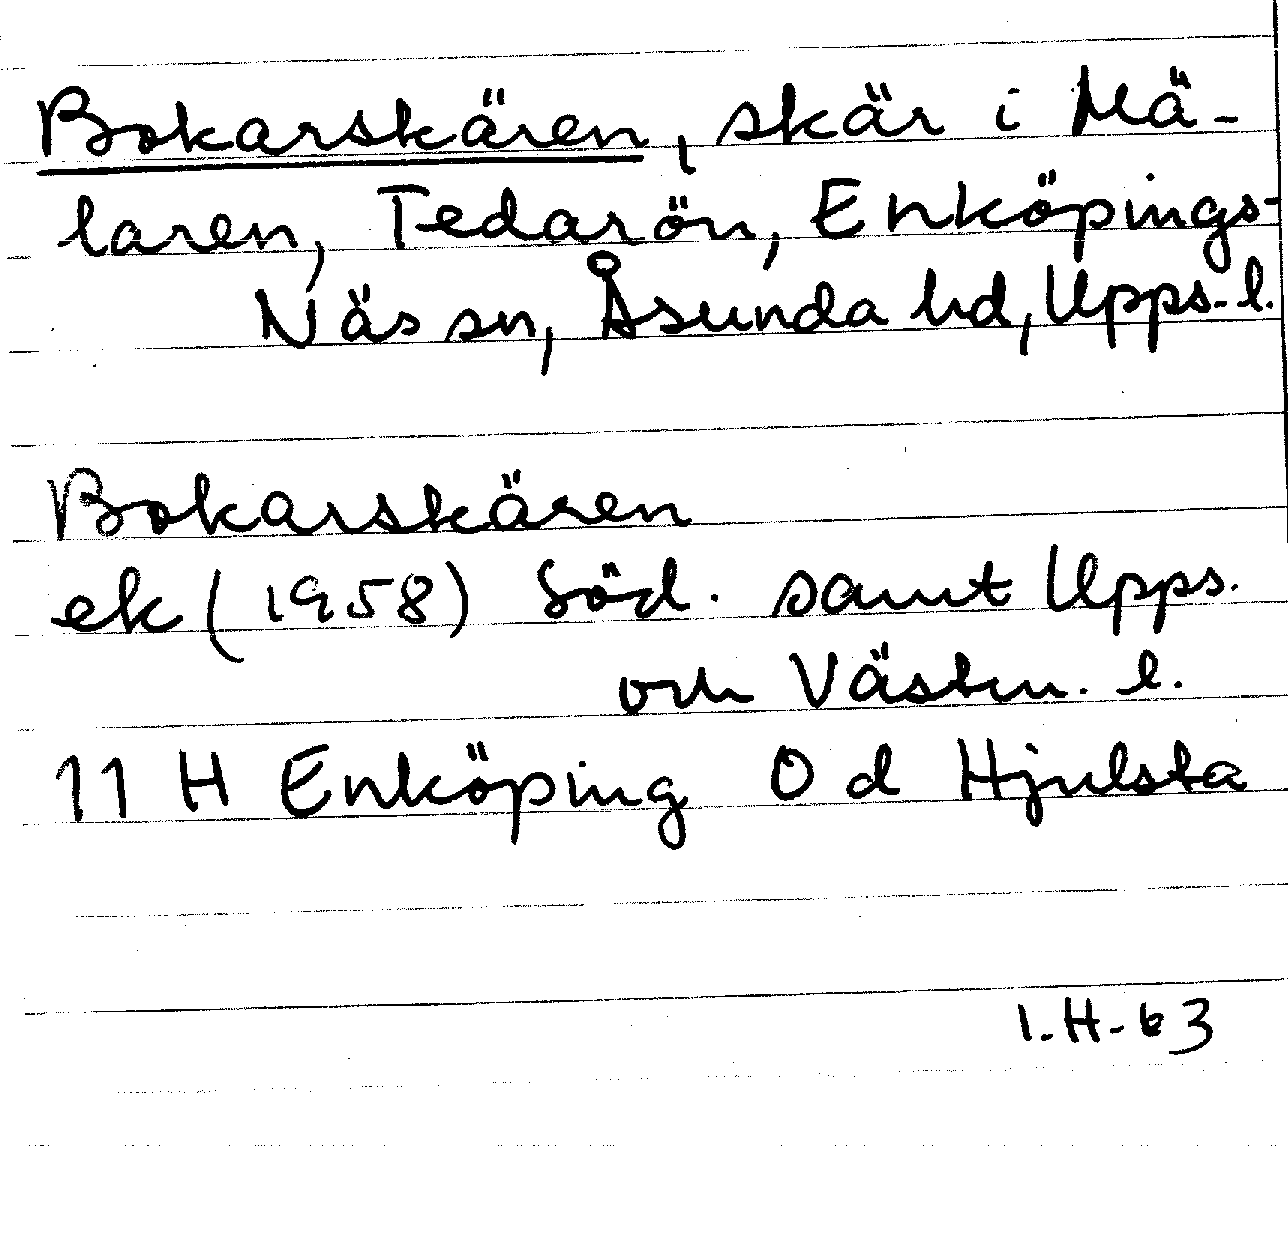 Bokarskären, skär i Mä-
laren, Tedarön, Enköpings-
Näs sn, Åsunda hd, Upps. l.
Bokarskären
ek (1958) Söd. samt Upps.
och Västm. l.
11 H Enköping 0 d Hjulsta
I.H-63